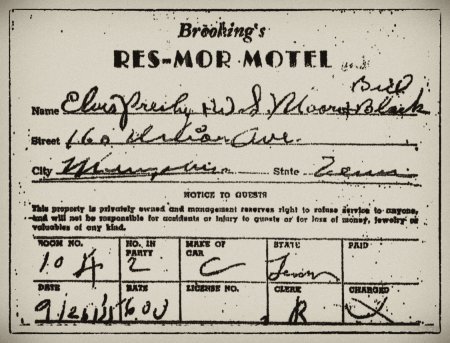 Brooking's
RES-MOR MOTEL
Bill
Name Elvis Presley W.S. Moore Black
Street 160 Union Ave.
City Memphis State Tenn
NOTICE TO GUESTS
This property is privately owned and management reserves right to refuse service to anyone,
and will not be responsible for accidents or injury to guests or for loss of money, jewelry or
valuables of any kind.
ROOM NO. NO. IN PARTY MAKE OF CAR STATE PAID
10 4 2 C Tenn
DATE RATE LICENSE NO. CLERK CHARGED
6.00 R